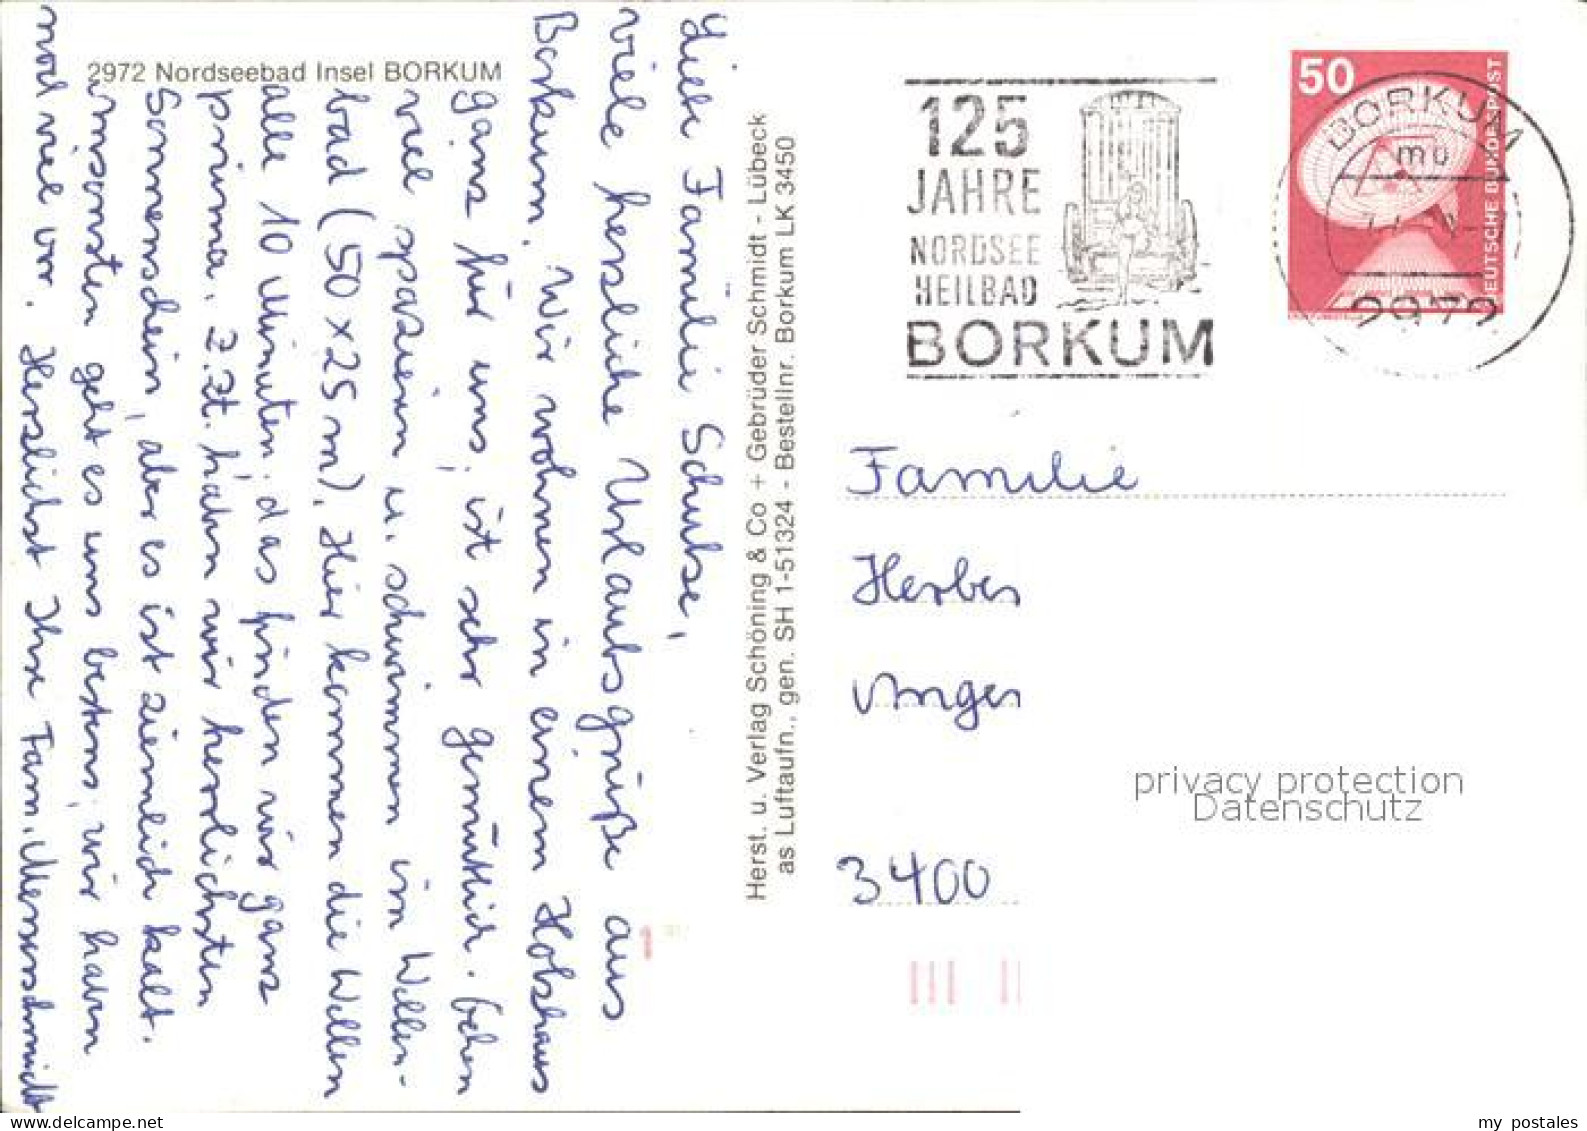 2972 Nordseebad Insel BORKUM
Liebe Familie Schulze,
viele herzliche Urlaubsgrüße aus
Borkum. Wir wohnen in einem Holzhaus
ganz für uns, ist sehr gemütlich. Gehen
viel spazieren u. schwimmen im Wellen-
bad (50 x 25 m). Hier kommen die Wellen
alle 10 Minuten, das finden wir ganz
prima. Z.Zt. haben wir herrlichsten
Sonnenschein, aber es ist ziemlich kalt.
Ansonsten geht es uns bestens, wir haben
noch viel vor. Herzlichst Ihre Fam. Messerschmidt
Herst. u. Verlag Schöning & Co + Gebrüder Schmidt - Lübeck
as Luftaufn., gen. SH 1-51324 - Bestellnr. Borkum LK 3450
125
JAHRE
NORDSEE
HEILBAD
BORKUM
50
DEUTSCHE BUNDESPOST
BORKUM
mu
2972
Familie
Herber
Anger
privacy protection
Datenschutz
3400
1
delcampe.net
my postales